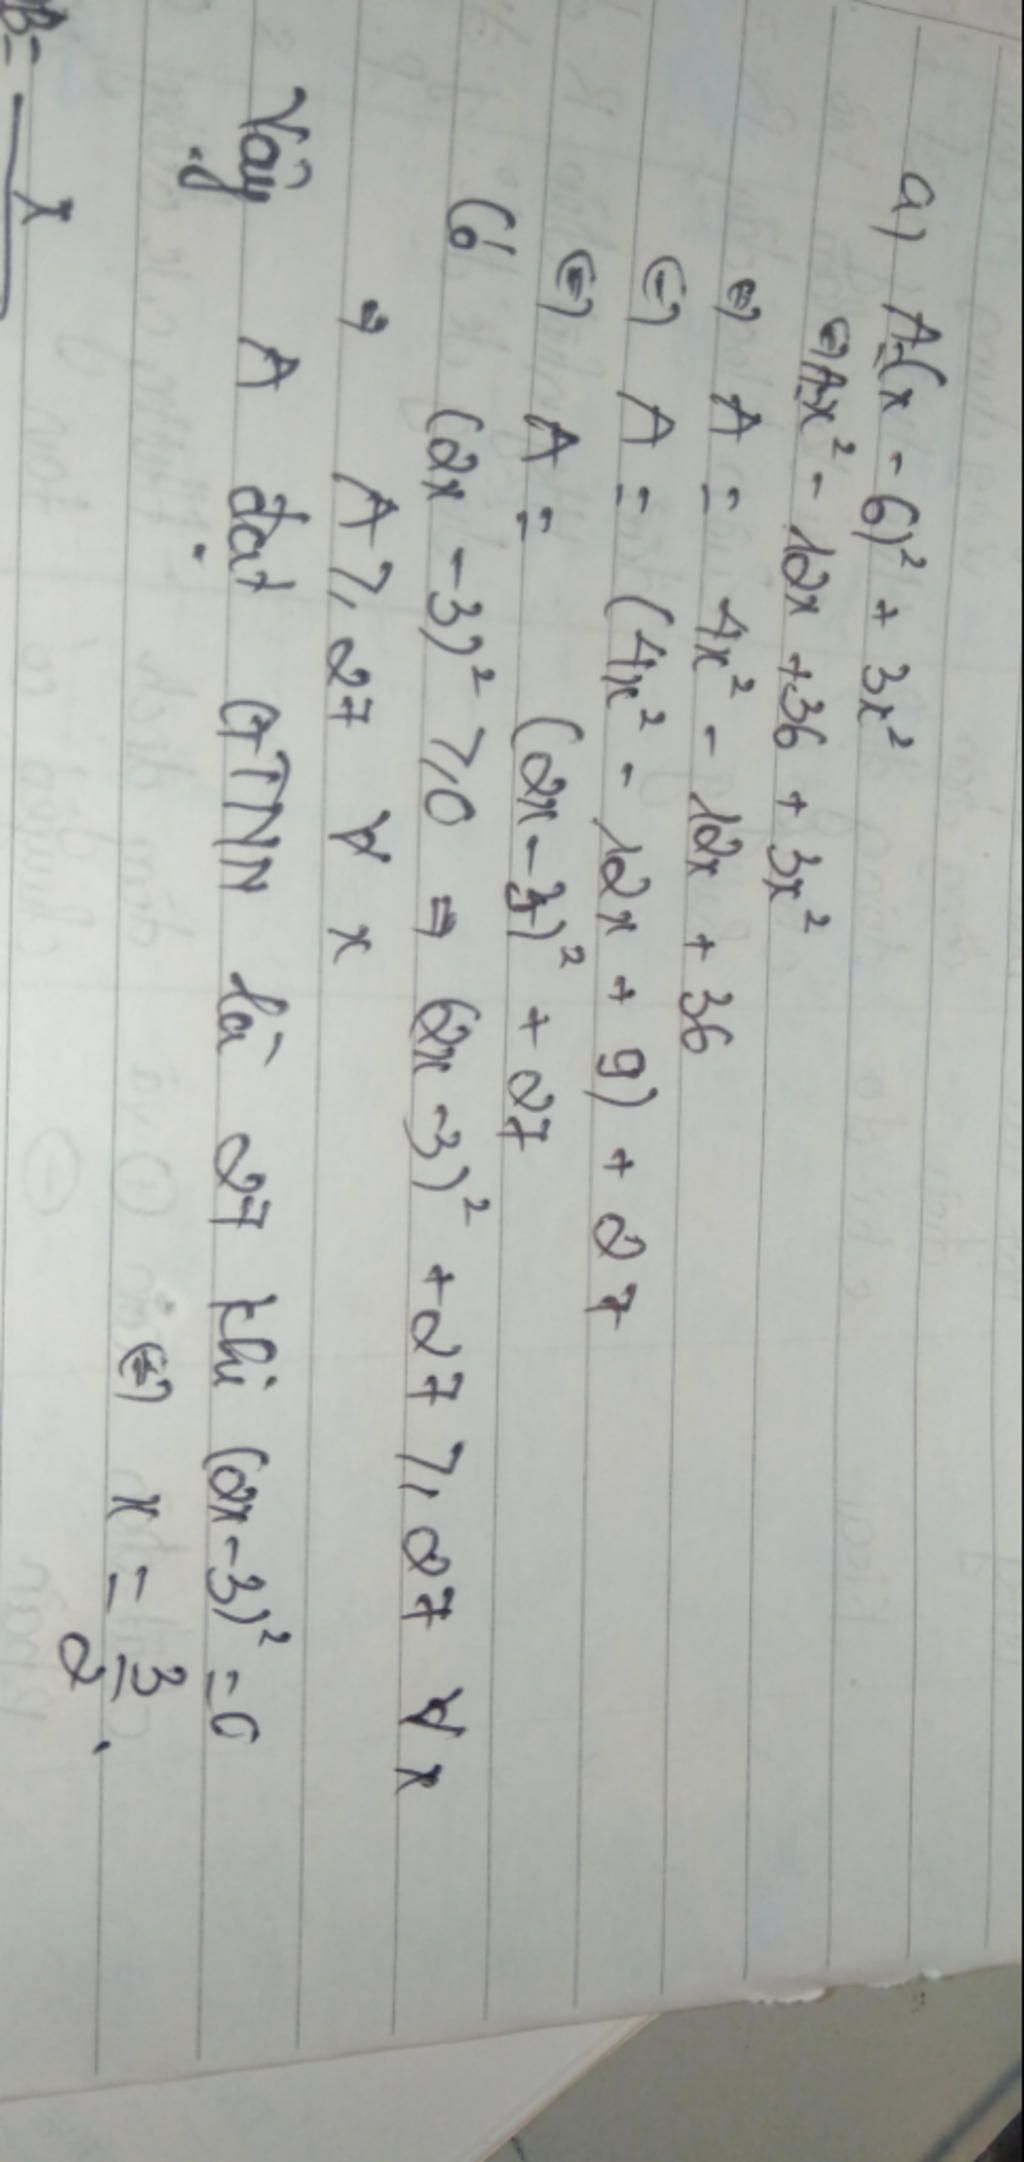 a) A=(x - 6)² + 3x²
⇔ A=x² - 12x + 36 + 3x²
⇔ A = 4x² - 12x + 36
⇔ A = (4x² - 12x + 9) + 27
⇔ A = (2x - 3)² + 27
Có (2x - 3)² ≥ 0 ⇒ (2x - 3)² + 27 ≥ 27 ∀ x
⇒ A ≥ 27 ∀ x
Vậy A đạt GTNN là 27 khi (2x - 3)² = 0
⇔ x = 3/2.
B =